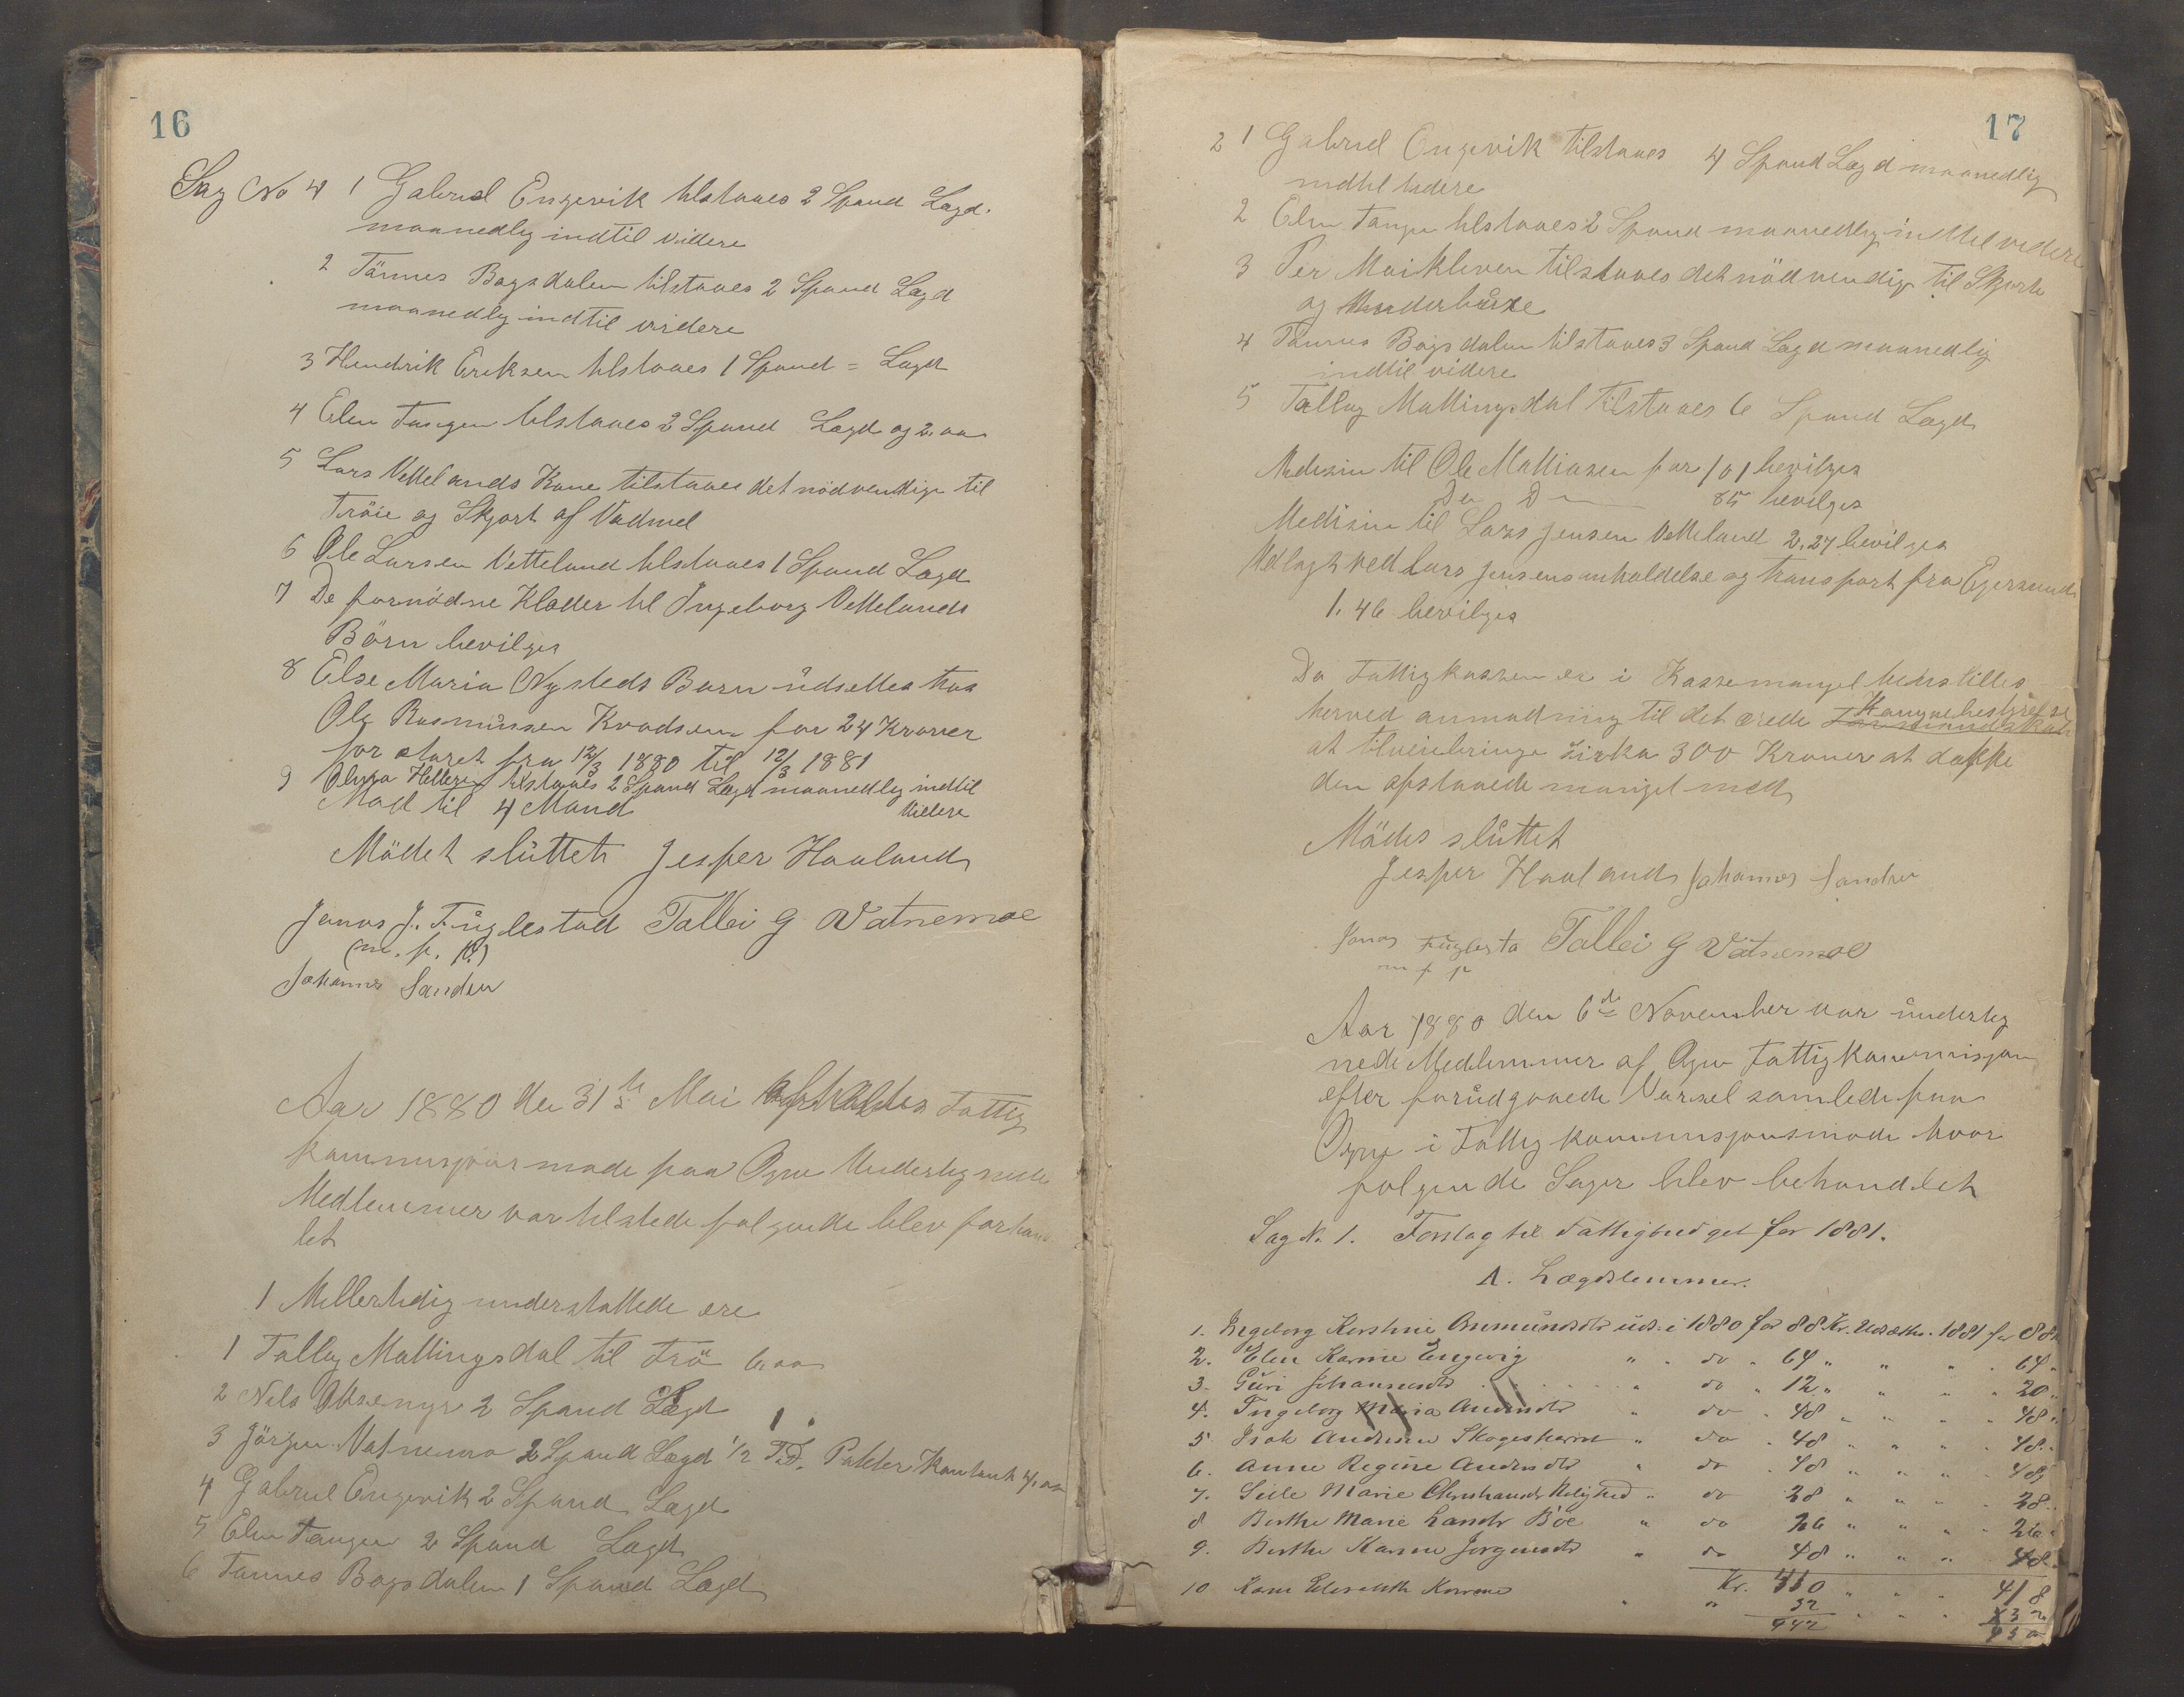 16
Sag No 4 1 Gabriel Engevik tilstaaes 2 Spand Lægd
maanedlig indtil videre
2 Tønnes Bogsdalen tilstaaes 2 Spand Lægd
maanedlig indtil videre
3 Hendrik Eriksen tilstaaes 1 Spand = Lægd
4 Elen Tangen tilstaaes 2 Spand Lægd og 2,00
5 Lars Vettelands Kone tilstaaes det nödvendige til
Tröie og Skjørt af Vadmel
6 Ole Larsen Vetteland tilstaaes 1 Spand Lægd
7 De fornödne Klæder til Ingeborg Vettelands
Börn bevilges
8 Else Maria Nysteds Barn udsættes hos
Ole Rasmussen Kvadsem for 24 Kroner
for Aaret fra 12/3 1880 til 12/3 1881
9 Helleren tilstaaes 2 Spand Lægd maanedlig indtil
videre
Mad til 4 Mand
Mödet sluttet Jesper Haaland
Jonas J. Fuglestad Tallei G Vatnemoe
(m. f. p.)
Johannes Sanden
Aar 1880 den 31te Mai afholdtes Fattig
kommisjons mode paa Ogne Undertegnede
Medlemmer var tilstede folgende blev forhand
let
1 Midlertidig understøttede ere
1 Tallag Mattingsdal til Frö 6,00
2 Nils 2 Spand Lægd
3 Jörgen Vatnemo 2 Spand Lægd 1/2 Td. Poteter Kontant 4,00
4 Gabriel Engevik 2 Spand Lægd
5 Elen Tangen 2 Spand Lægd
6 Tønnes Bogsdalen 1 Spand Lægd
17
2 1 Gabriel Engevik tilstaaes 4 Spand Lægd maanedlig
indtil videre
2 Elen Tangen tilstaaes 2 Spand maanedlig indtil videre
3 Per Moikleven tilstaaes det nödvendige til Skjorte
og Underbuxe
4 Tønnes Bogsdalen tilstaaes 3 Spand Lægd maanedlig
indtil videre
5 Tallag Mattingsdal tilstaaes 6 Spand Lægd
Medisin til Ole Mathiasen for 101 bevilges
Do D 85 bevilges
Medisin til Lars Jensen Vetteland 2,27 bevilges
Udlagt ved Lars Jensens anholdelse og transport fra Egersund
1.46 bevilges
Da Fattigkassen er i Kassemangel henstilles
herved anmodning til det ærede Formandskab Kommunebestyrelse
at tilveiebringe Zirka 300 Kroner at dække
den opstaaede mangel med
Mödes sluttet
Jesper Haaland Johannes Sanden
Jonas Fuglesta Tallei G Vatnemoe
m f p
Aar 1880 den 6te November var underteg
nede Medlemmer af Ogne Fattigkommisjon
efter forudgaaede Varsel samlede paa
Ogne i Fattigkommisjonsmode hvor
folgende Sager blev behandlet
Sag N. 1. Forslag til Fattigbudget for 1881.
A. Lægdslemmer.
1. Ingeborg Kirstine Aamundsdtr uds. i 1880 for 88 Kr. Udsættes 1881 for 88
2. Elen Karine Engevig " " do " 64 " " " " 64 "
3. Guri Johannesdtr " do " 12 " " " " 20 "
4. Ingeborg Maria " do " 48 " " " " 48 "
5. Isak Andersen " do " 48 " " " " 48 "
6. Anne Regine Andersdtr " do " 48 " " " " 48,
7. Marie " do 28 " " " " 28 "
8 Berthe Marie Larsdtr Böe " do 26 " " " " 26 "
9. Berthe Karine Jorgensdtr " do 48 " " " 48 "
Kr. 410 " " " 418
10 Karen Elisabeth " " 32 " " " 32
442 450